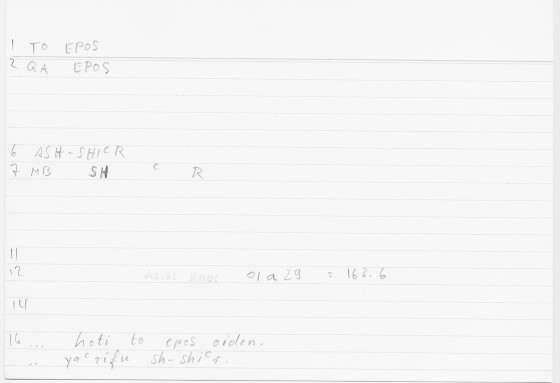 1 TO EPOS
2 QA EPOS
6 ASH-SHIᶜR
7 MB SH ᶜ R
11
12 Arist Rhet 01a29 = 163.6
14
16 ... hoti to epos oiden.
.. yaᶜrifu sh-shiᶜr.